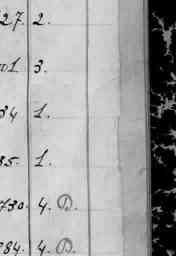 27. 2.
01. 3.
34 1.
35. 1.
730. 4. D.
284. 4. D.